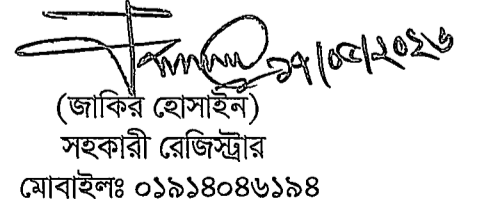 ১৭/০৫/২০২৬
(জাকির হোসাইন)
সহকারী রেজিস্ট্রার
মোবাইলঃ ০১৯১৪০৪৬১৯৪